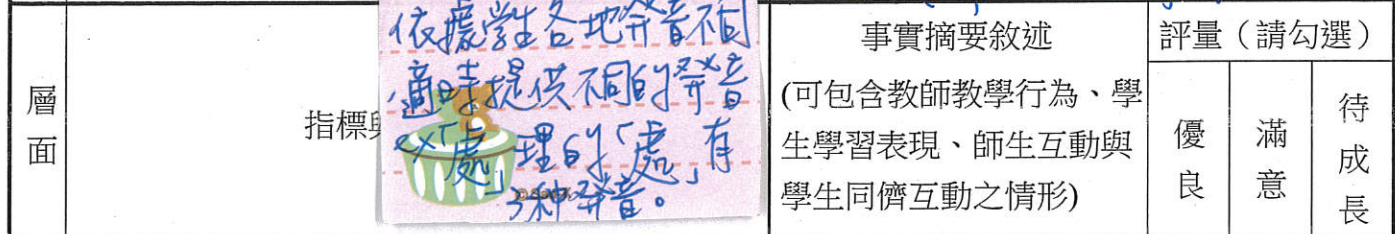 依據學生各地發音不同
適時提供不同的發音
ex「處」理的「處」有
3种發音。
層面
指標與
事實摘要敘述
(可包含教師教學行為、學
生學習表現、師生互動與
學生同儕互動之情形)
評量（請勾選）
優良
滿意
待成長